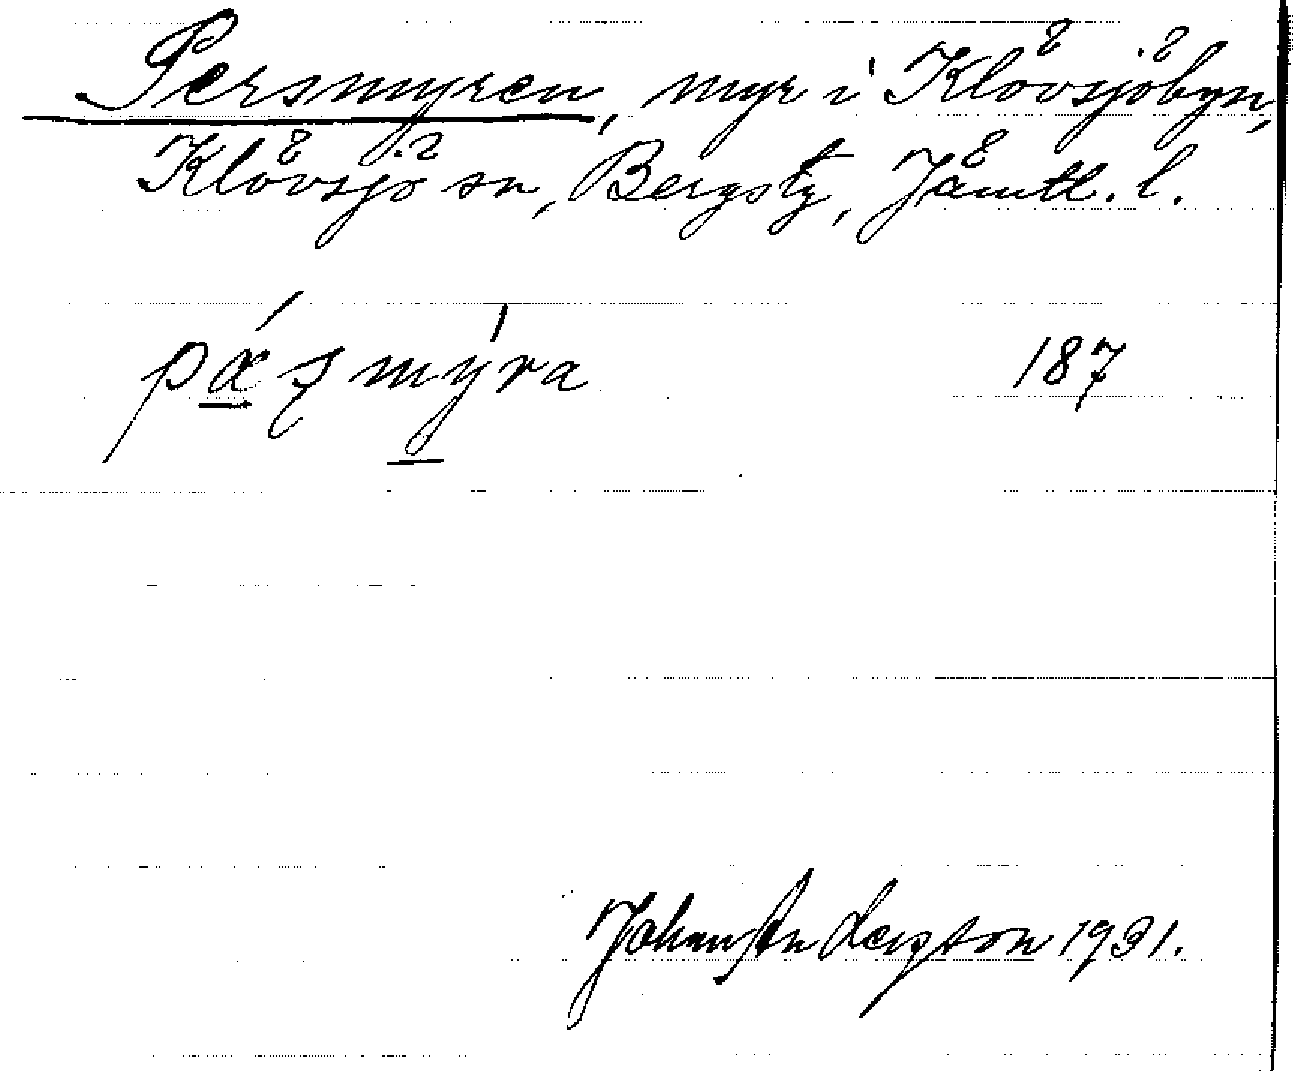 Persmyren, myr i Klövsjöbyn,
Klövsjö sn, Bergs tg, Jämtl. l.
pǽʂmýra 187
Johan Anderson 1931.